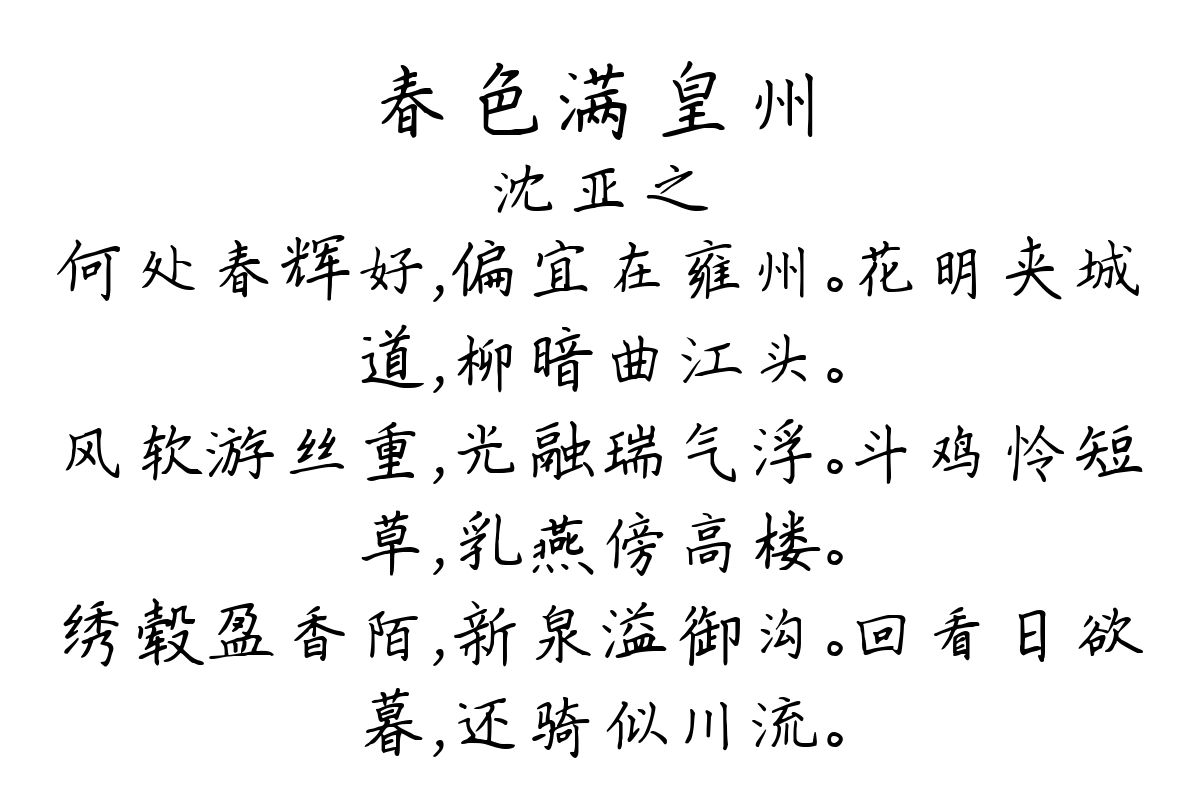 春色满皇州
沈亚之
何处春辉好,偏宜在雍州。花明夹城
道,柳暗曲江头。
风软游丝重,光融瑞气浮。斗鸡怜短
草,乳燕傍高楼。
绣毂盈香陌,新泉溢御沟。回看日欲
暮,还骑似川流。